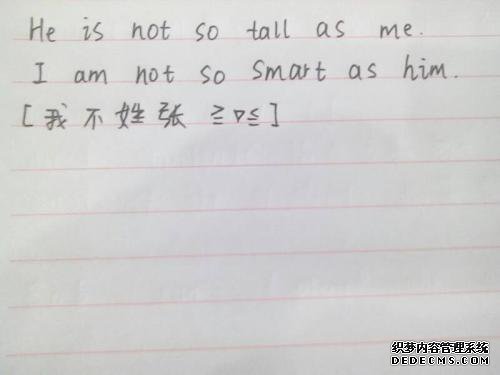 He is not so tall as me.
I am not so smart as him.
[我不姓张 ≧▽≦]
织梦内容管理系统
DEDECMS.COM